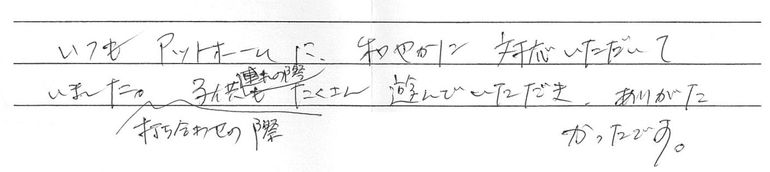 いつも アットホームに、和やかに 対応いただいて
いました。子供も たくさん 遊んでいただき、ありがた
連れの際
打ち合わせの際
かったです。